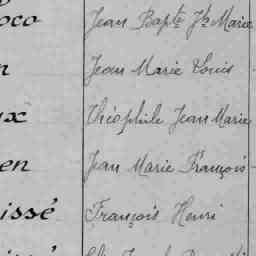 oco Jean Bapte Jh Marie
n Jean Marie Louis
ux Théophile Jean Marie
en Jean Marie François
issé François Henri